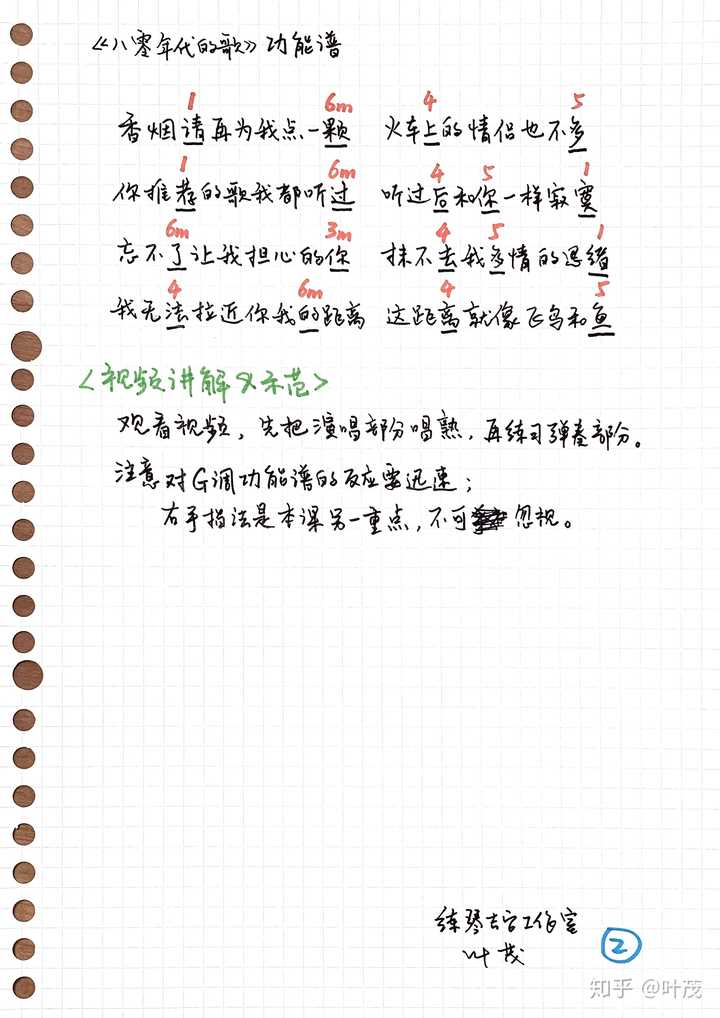 《八零年代的歌》功能谱
1 6m 4 5
香烟请再为我点一颗 火车上的情侣也不多
1 6m 4 5 1
你推荐的歌我都听过 听过后和你一样寂寞
6m 3m 4 5 1
忘不了让我担心的你 抹不去我多情的思绪
4 6m 4 5
我无法拉近你我的距离 这距离就像飞鸟和鱼
<视频讲解&示范>
观看视频，先把演唱部分唱熟，再练习弹奏部分。
注意对G调功能谱的反应要迅速；
右手指法是本课另一重点，不可忽视。
练琴去字工作室
叶茂
2
知乎 @叶茂